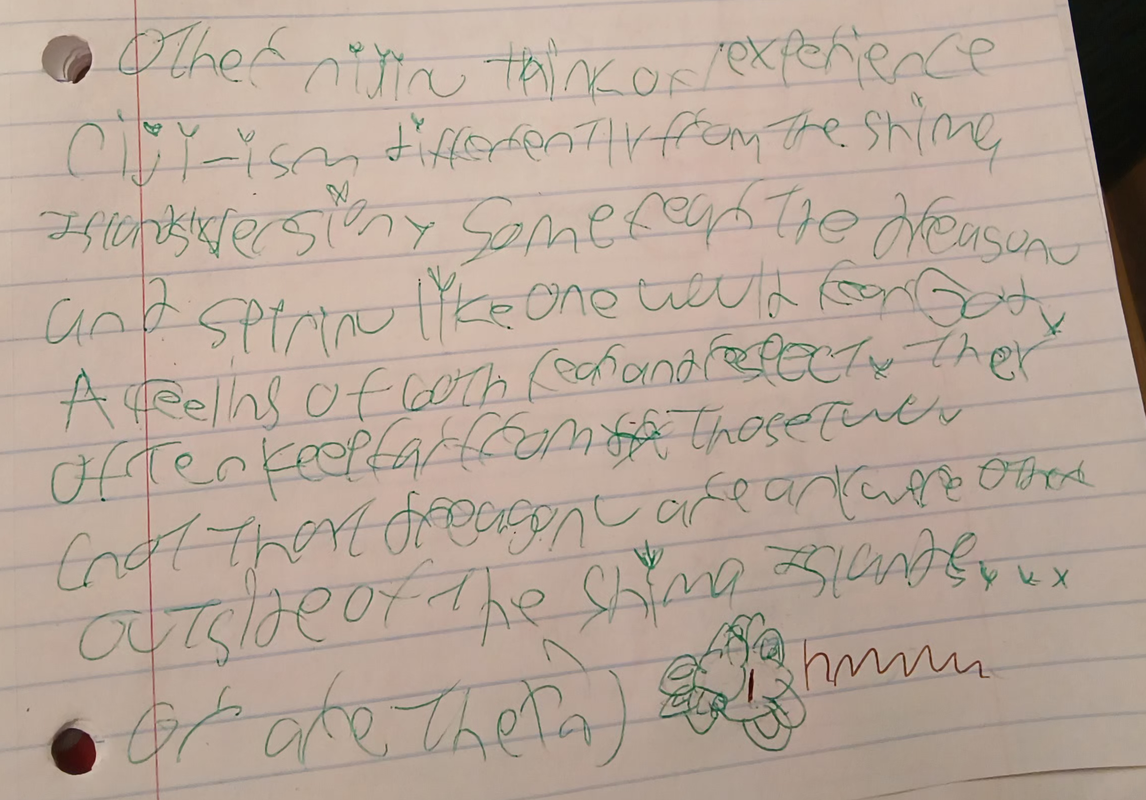 Other nijin think or/experience
Ciji-ism differently from the Shima
Islands version, Some fear the dreason
and Sptrin like one would fear God,
A feeling of both fear and respect, They
often keep far from those two,
(not that dreeasons are anywere other
outside of the Shima Islands...
or are they?)
hmmmm